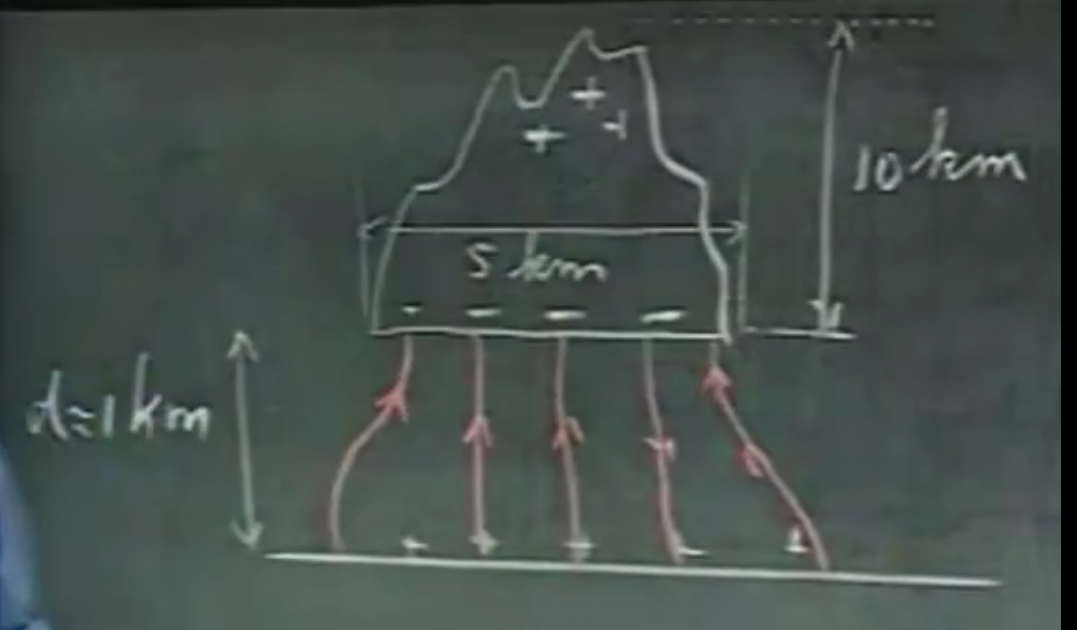 +
+ +
10 km
5 km
- - - -
d≈1 km
+ + + + +